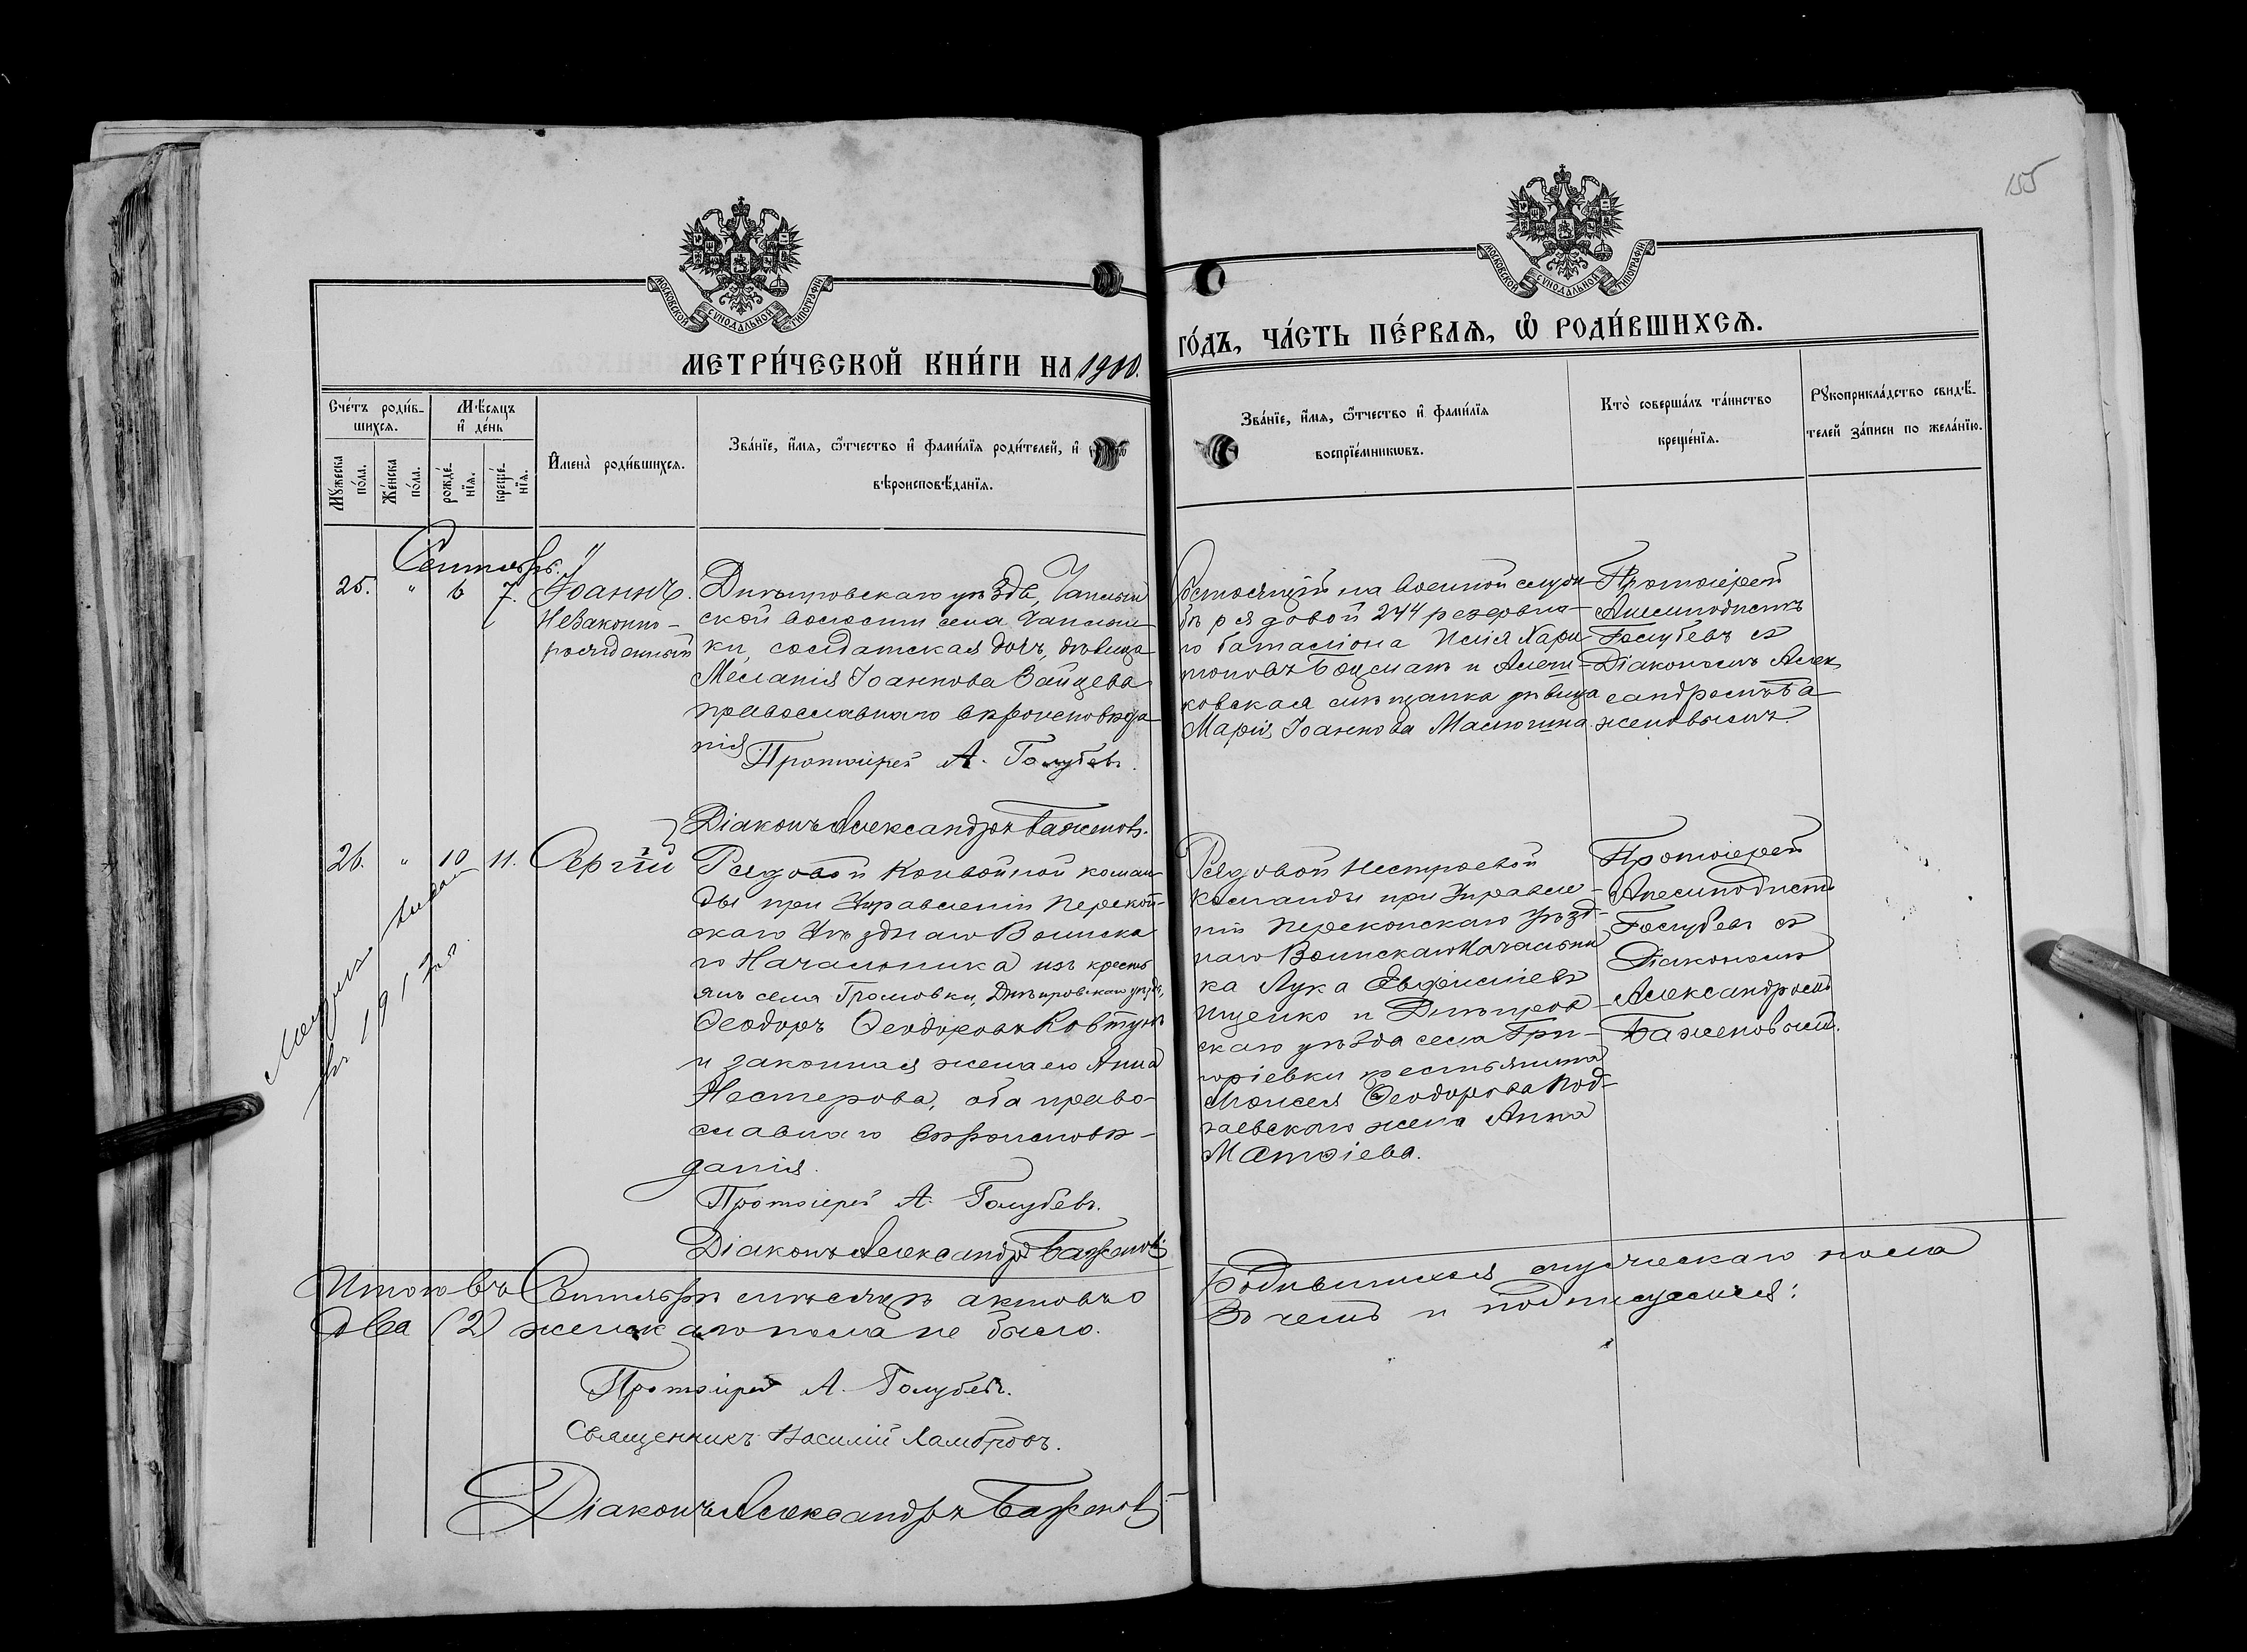 155
МОСКОВСКОЙ СѴНОДАЛЬНОЙ ТИПОГРАФІИ
МОСКОВСКОЙ СѴНОДАЛЬНОЙ ТИПОГРАФІИ
МЕТРИ́ЧЕСКОЙ КНИ́ГИ НА 1910.
ГО́ДЪ, ЧА́СТЬ ПЕ́РВАѦ, Ѽ РОДИ́ВШИХСѦ.
Сче́тъ роди́в-
шихсѧ.
Мѣ́сѧцъ
и҆ де́нь
Мꙋ́жеска
по́ла.
Же́нска
по́ла.
рожде́-
нїѧ.
креще́-
нїѧ.
И҆мена̀ роди́вшихсѧ.
Зва́нїе, и҆́мѧ, ѻ҆́тчество и҆ фами́лїѧ роди́телей, и҆
вѣроисповѣ́данїѧ.
Зва́нїе, и҆́мѧ, ѻ҆́тчество и҆ фами́лїѧ
воспрїе́мникѡвъ.
Кто̀ соверша́лъ та́инство
креще́нїѧ.
Рꙋкоприкла́дство свидѣ́-
телей за́писи по жела́нїю.
Сентябрь.
25. " 6 7. Іоаннъ.
Незаконно-
рожденный
Днѣпровскаго уѣзда, Чаплын
ской волости села Чаплын
ки, солдатская дочь, дѣвица
Меланія Іоаннова Зайцева
православнаго вѣроисповѣда
нія
Протоіерей А. Голубевъ.
Діаконъ Александръ Баженовъ.
Состоящій на военной служ
бѣ рядовой 244 резервна-
го баталіона Илія Хари
тоновъ Боцманъ и Алеш-
ковская мѣщанка дѣвица
Марія Іоаннова Маслюгина.
Протоіерей
Анемподистъ
Голубевъ съ
Діакономъ Алек
сандромъ Ба
женовымъ.
26. " 10 11. Сергій
Рядовой Конвойной коман-
ды при Управленіи Перекоп-
скаго Уѣзднаго Воинска
го Начальника изъ кресть
янъ села Громовки, Днѣпровскаго уѣзда,
Ѳеодоръ Ѳеодоровъ Ковтунъ
и законная жена его Анна
Нестерова, оба право-
славнаго вѣроисповѣ-
данія.
Протоіерей А. Голубевъ.
Діаконъ Александръ Баженовъ
Рядовой Нестроевой
команды при Управле-
ніи Перекопскаго Уѣзд-
наго Воинскаго Начальни
ка Лука Евфиміевъ
Ищенко и Днѣпров
скаго уѣзда села Гри-
горіевки крестьянина
Моисея Ѳеодорова Под-
гаевскаго жена Анна
Матѳіева.
Протоіерей
Анемподистъ
Голубевъ съ
Діакономъ
Александромъ
Баженовымъ.
въ 1917 г.
Итого въ Сентябрѣ мѣсяцѣ актовъ о
два (2) женскаго пола не было.
Родившихся мужескаго пола
Въ чемъ и подписуемся:
Протоіерей А. Голубевъ.
Священникъ Василій Ламбровъ.
Діаконъ Александръ Баженовъ